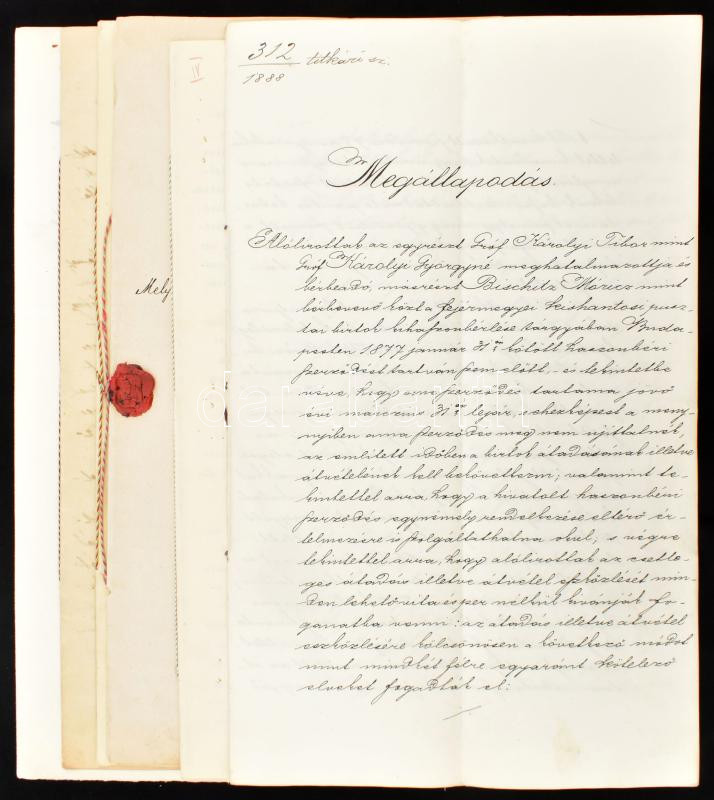 312
1888 titkári sz.
IV
Megállapodás.
Mely
Alólirottak az egyrészt Gróf Károlyi Tibor mint
Gróf Károlyi Györgyné meghatalmazottja és
bérbeadó, másrészt Bischitz Móricz mint
bérbevevő közt a fejérmegyei kishantosi pusz-
tai birtok kihaszonbérlése tárgyában Buda-
pesten 1877 január 31én kötött haszonbéri
szerződést tartván szem előtt, – és tekintetbe
véve, hogy ama szerződés tartama jövő
évi márczius 31én lejár, s ehezképest a meny-
nyiben ama szerződés meg nem újíttatnék,
az említett időben a birtok átadásának illetve
átvételének kell bekövetkezni; valamint te-
kintettel arra, hogy a hivatolt haszonbéri
szerződés egynémely rendelkezése eltérő ér-
telmezésre is szolgáltathatna okul; s végre
tekintettel arra, hogy alólirottak az esetle-
ges átadás illetve átvétel eszközlését min-
den lehető vita és per nélkül kivánják fo-
ganatba venni: az átadás illetve átvétel
eszközlésére kölcsönösen a következő módot
mint mindkét félre egyaránt kötelező
elveket fogadták el: